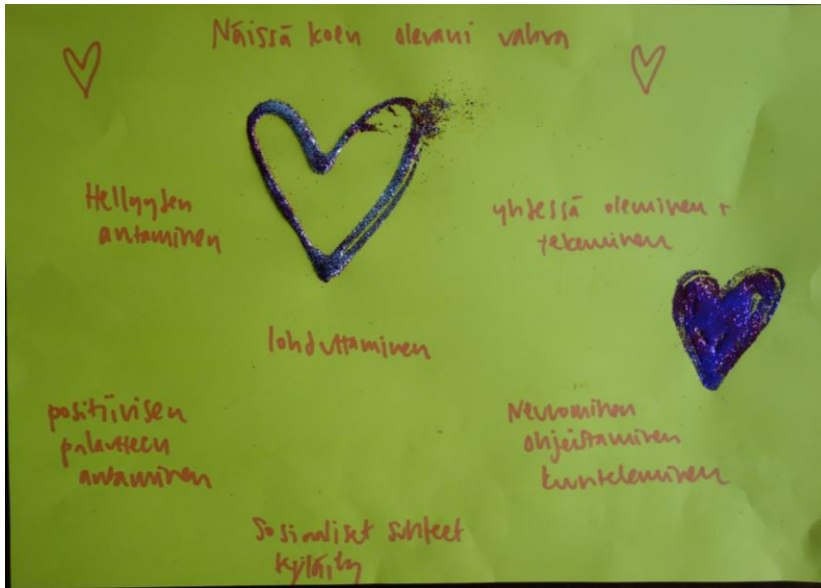 Näissä koen olevani vahva
Hellyyden
antaminen
yhdessä oleminen +
tekeminen
lohduttaminen
positiivisen
palautteen
antaminen
Neuvominen
ohjeistaminen
kunteleminen
Sosiaaliset suhteet
kyläily